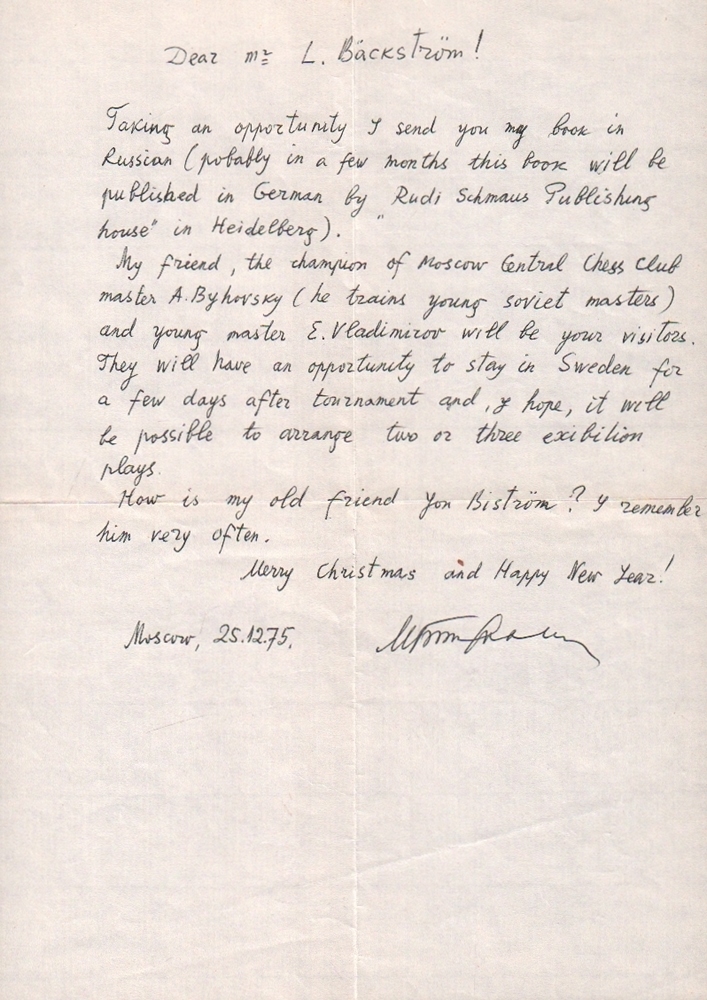 Dear mr L. Bäckström!
Taking an opportunity I send you my book in
Russian (pobably in a few months this book will be
published in German by "Rudi Schmaus Publishing
house" in Heidelberg).
My friend, the champion of Moscow Central Chess Club
master A.Byhovsky (he trains young soviet masters)
and young master E.Vladimirov will be your visitors.
They will have an opportunity to stay in Sweden for
a few days after tournament and, I hope, it will
be possible to arrange two or three exibition
plays.
How is my old friend Yon Biström? I remember
him very often.
Merry Christmas and Happy New Year!
Moscow, 25.12.75.